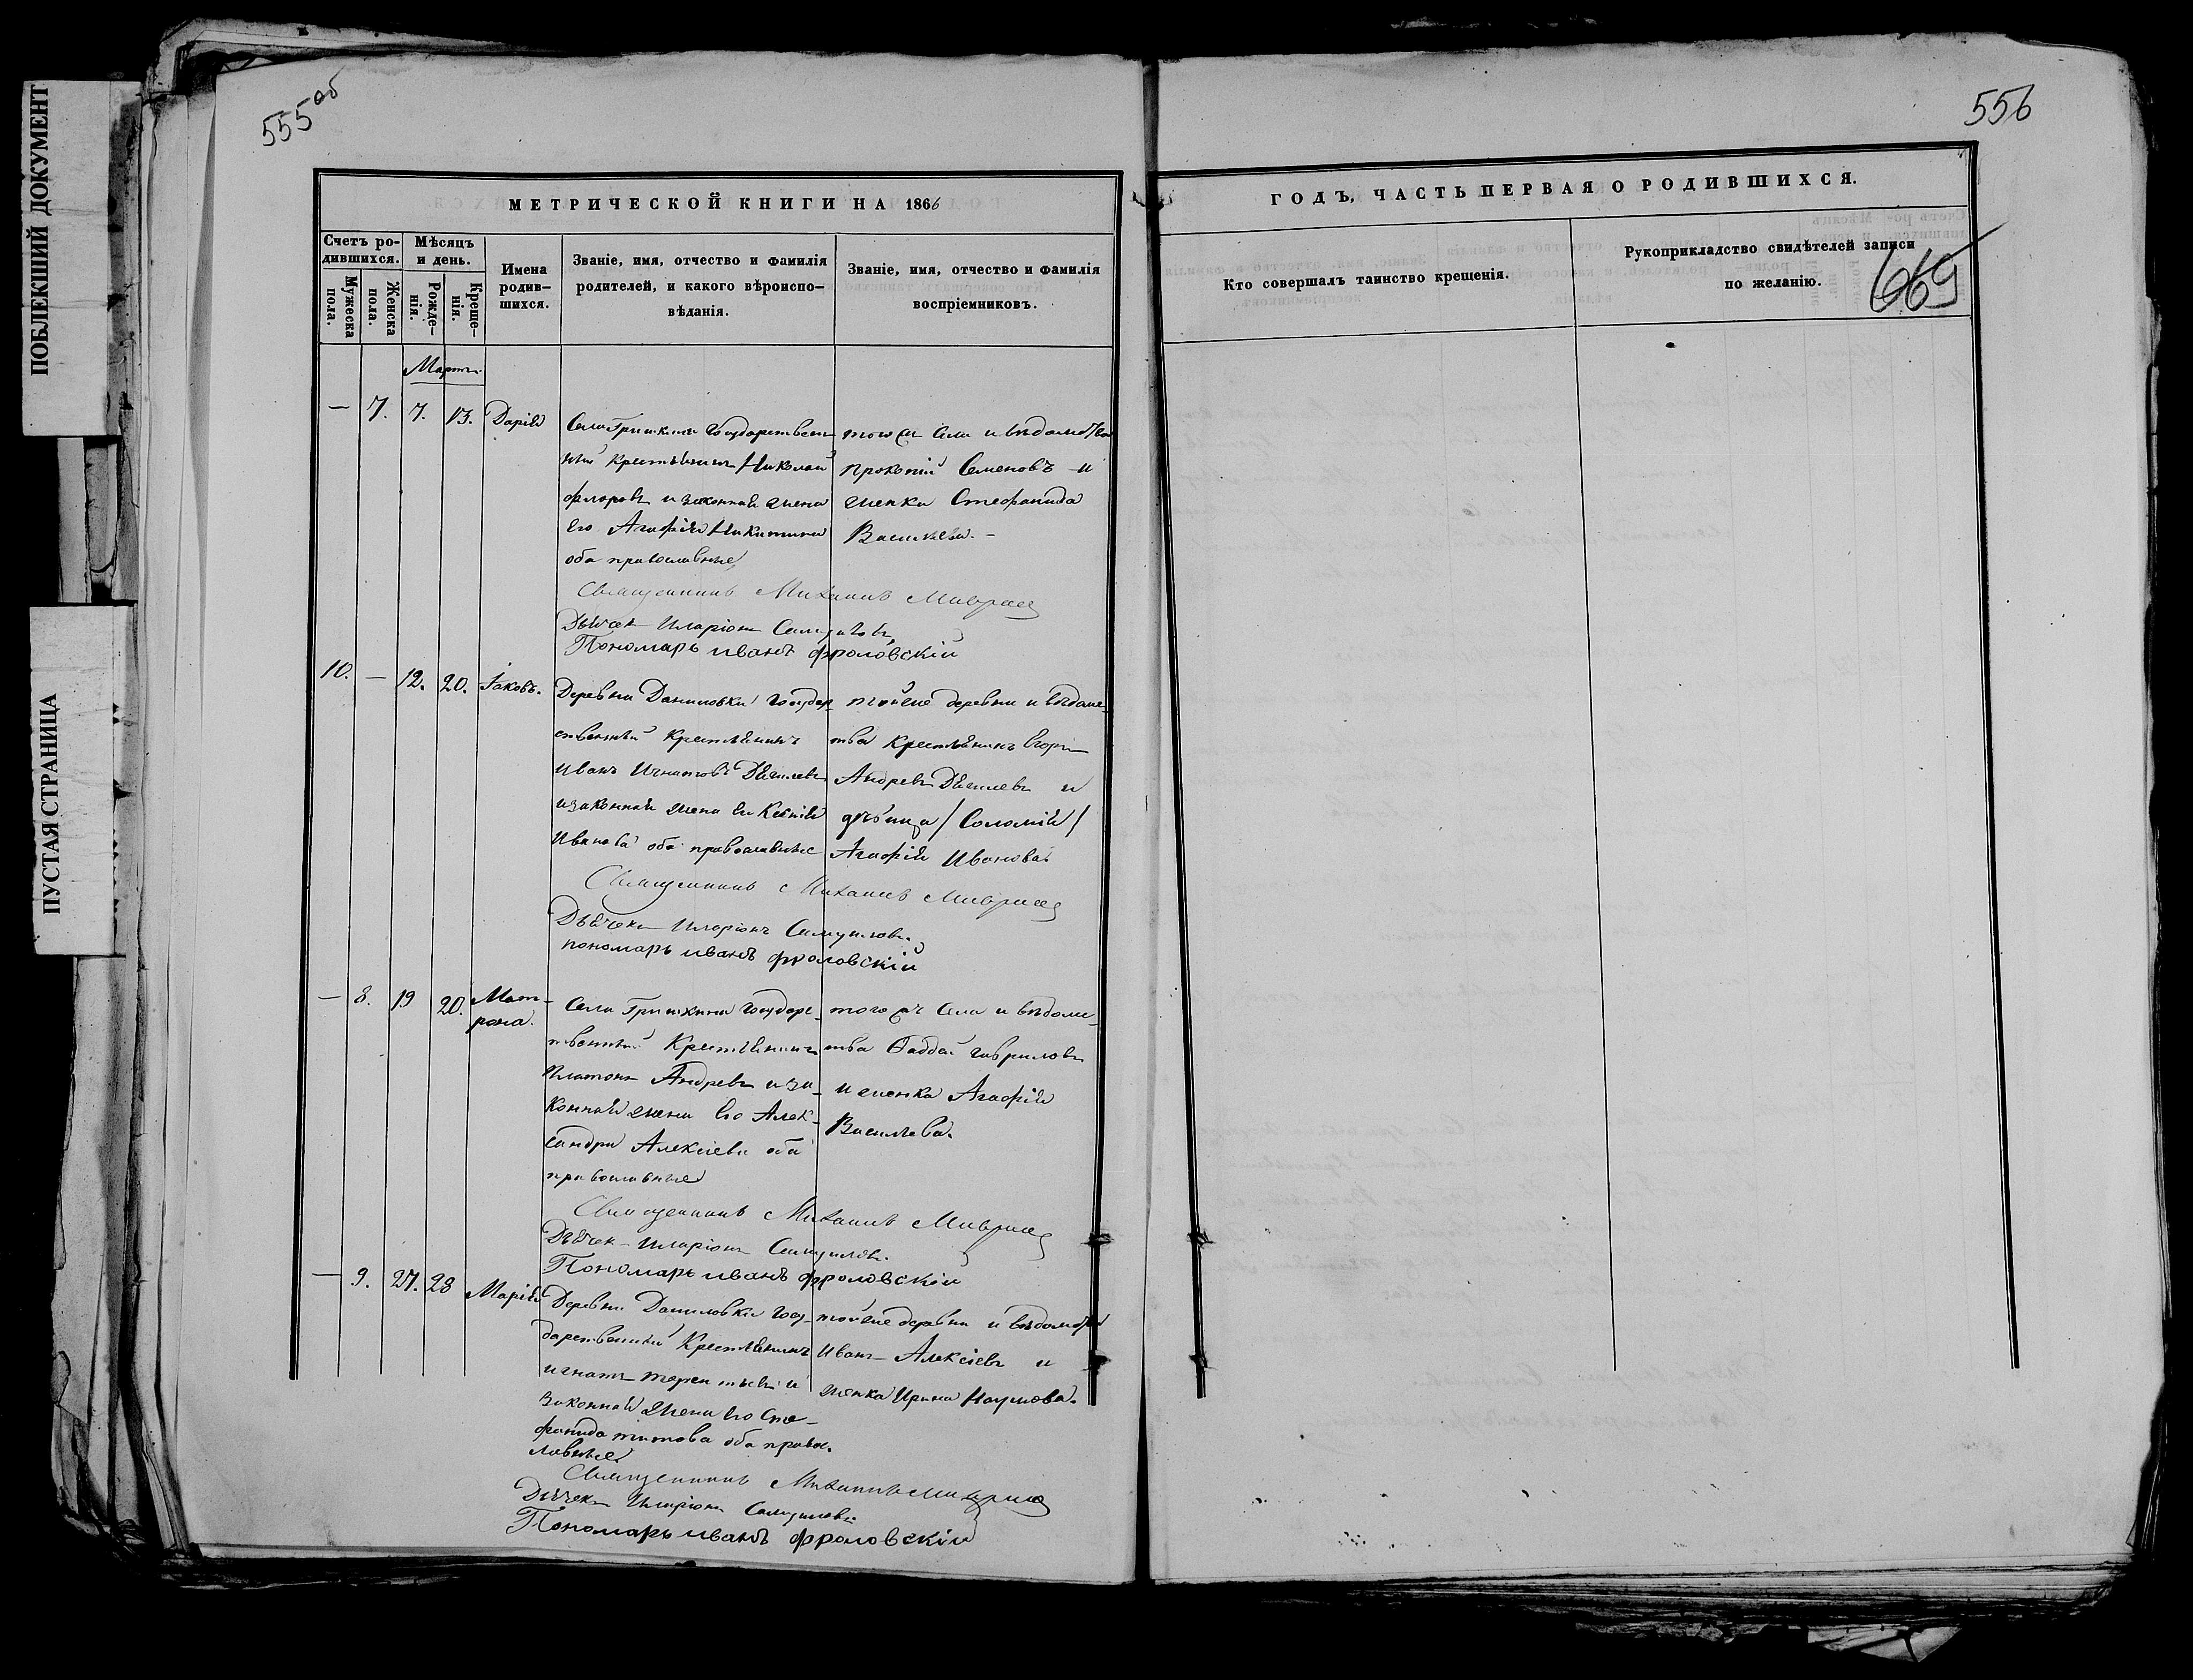 ПОБЛЕКШИЙ ДОКУМЕНТ
ПУСТАЯ СТРАНИЦА
555об
556
МЕТРИЧЕСКОЙ КНИГИ НА 1866
ГОДЪ, ЧАСТЬ ПЕРВАЯ О РОДИВШИХСЯ.
Счетъ родившихся.
Мужеска пола.
Женска пола.
Мѣсяцъ и день.
Рожде-нія.
Креще-нія.
Имена родив-шихся.
Званіе, имя, отчество и фамилія
родителей, и какого вѣроиспо-
вѣданія.
Званіе, имя, отчество и фамилія
воспріемниковъ.
Кто совершалъ таинство крещенія.
Рукоприкладство свидѣтелей записи
по желанію.
669
Мартъ
— 7. 7. 13. Дарія
Села Гришкина Государствен-
ный крестьянинъ Николай
Флоровъ и законная жена
его Агафія Никитина
оба православные
того же села и вѣдомства
Прокопій Семеновъ и
женка Стефанида
Васильева. —
Священникъ Михаилъ
Дьячекъ Иларіонъ Самуиловъ
Пономарь Иванъ Фроловскій
10. — 12. 20. Іаковъ.
Деревни Даниловки государ-
ственный крестьянинъ
Иванъ Игнатовъ
и законная жена его Ксенія
Иванова оба православные
той же деревни и вѣдомс-
тва крестьянинъ Егоръ
Андреевъ и
дѣвица / Соломія /
Агафія Иванова
Священникъ Михаилъ
Дьячекъ Иларіонъ Самуиловъ
пономарь Иванъ Фроловскій
— 8. 19 20. Мат-
рона.
Села Гришкина государс-
твенный Крестьянинъ
Платонъ Андреевъ и за-
конная жена его Алек-
сандра Алексіева оба
православные
того же села и вѣдомс-
тва Фаддей Гавриловъ
и женка Агафія
Васильева.
Священникъ Михаилъ
Дьячекъ Иларіонъ Самуиловъ
Пономарь Иванъ Фроловскій
— 9. 27. 28 Марія
Деревни Даниловки госу-
дарственный Крестьянинъ
Игнатъ Терентьевъ и
законная жена его Сте-
фанида Титова оба правос-
лавные
той же деревни и вѣдомства
Иванъ Алексіевъ и
женка Ирина Наумова.
Священникъ Михаилъ
Дьячекъ Иларіонъ Самуиловъ
Пономарь Иванъ Фроловскій